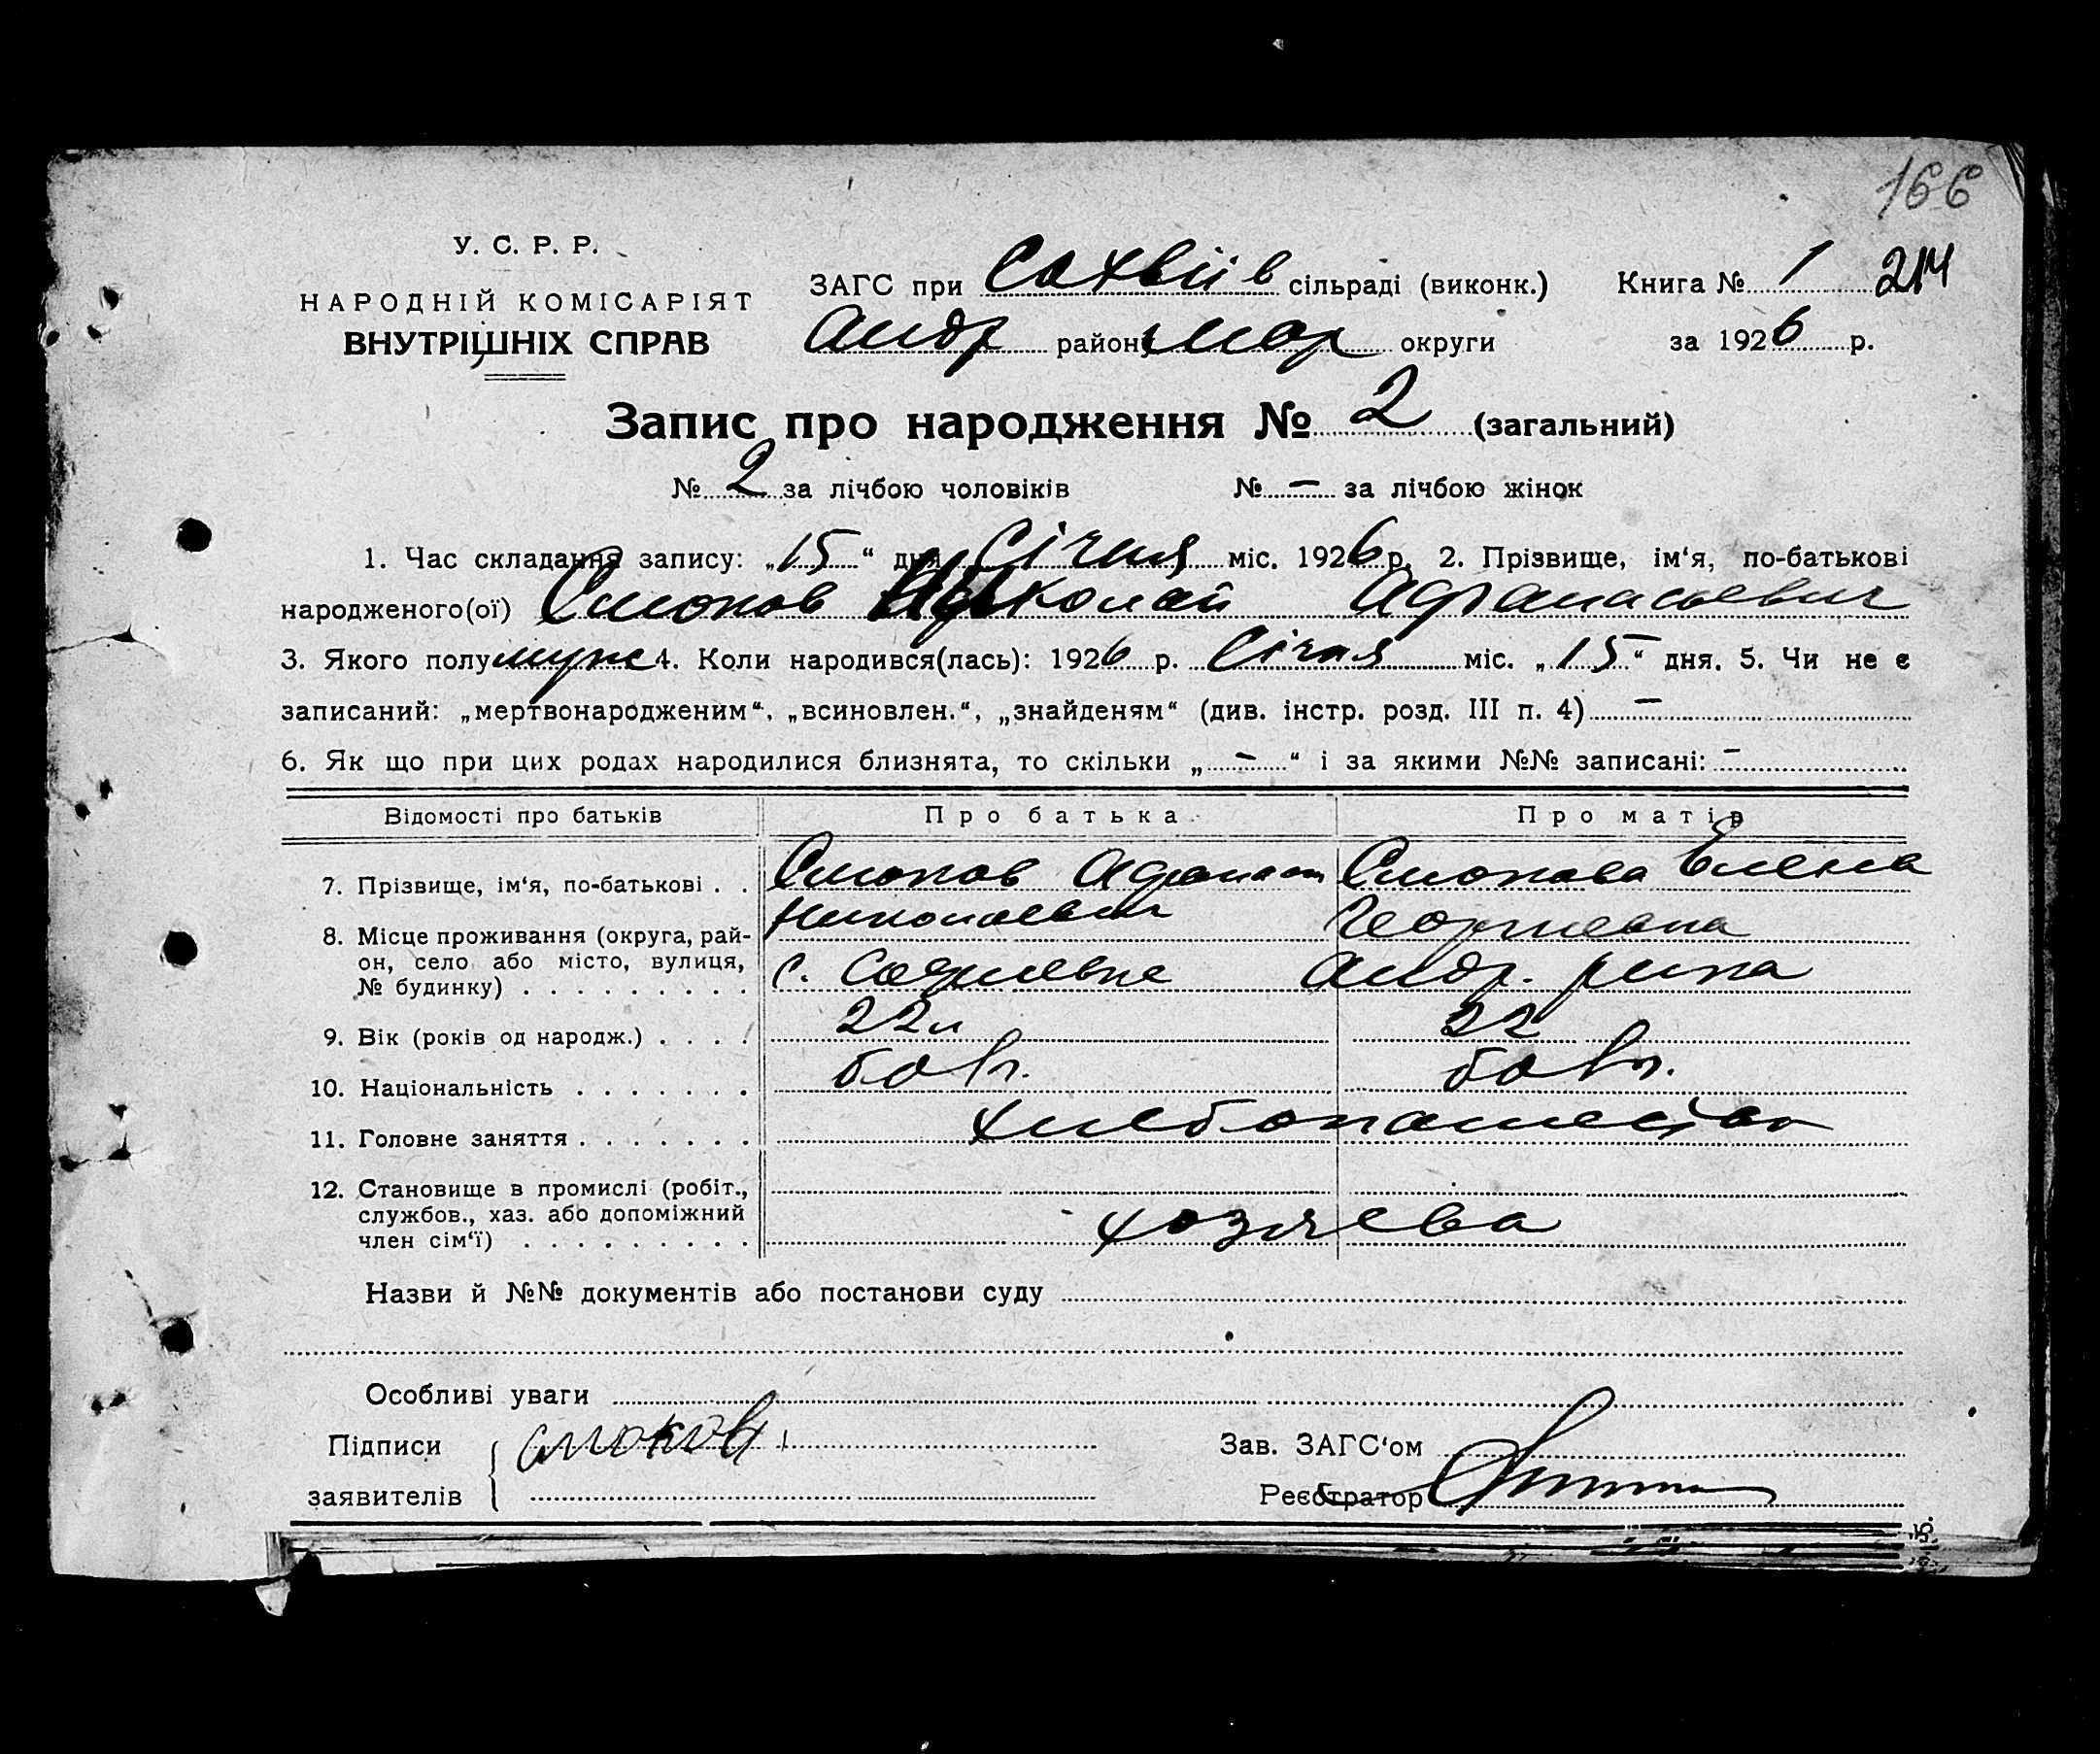 166
У. С. Р. Р.
НАРОДНІЙ КОМІСАРІЯТ
ВНУТРІШНІХ СПРАВ
ЗАГС при Сохвіїв сільраді (виконк.) Книга № 1 214
Андр район Мар округи за 1926 р.
Запис про народження № 2 (загальний)
№ 2 за лічбою чоловіків № – за лічбою жінок
1. Час складання запису: „15“ дня Січня міс. 1926 р. 2. Прізвище, ім‘я, по-батькові
народженого(ої) Смоков Николай Афанасьевич
3. Якого полу муж 4. Коли народився(лась): 1926 р. Січня міс. „15“ дня. 5. Чи не є
записаний: „мертвонародженим“, „всиновлен.“, „знайденям“ (див. інстр. розд. III п. 4) –
6. Як що при цих родах народилися близнята, то скільки „–“ і за якими №№ записані: –
Відомості про батьків Про батька Про матір
7. Прізвище, ім‘я, по-батькові . . Смоков Афанасий Смокова Елена
Николаевич Георгиевна
8. Місце проживання (округа, рай-
он, село або місто, вулиця,
№ будинку) . . . . . . . . . с. Софиевка Андр. р-на
9. Вік (років од народж.) . . . . 22 л 22
10. Національність . . . . . . . болг. болг.
11. Головне заняття . . . . . . .
12. Становище в промислі (робіт.,
службов., хаз. або допоміжний
член сім‘ї) . . . . . . . . . хозяева
Назви й №№ документів або постанови суду
Особливі уваги
Підписи Смоков Зав. ЗАГС‘ом
заявителів Реєстратор